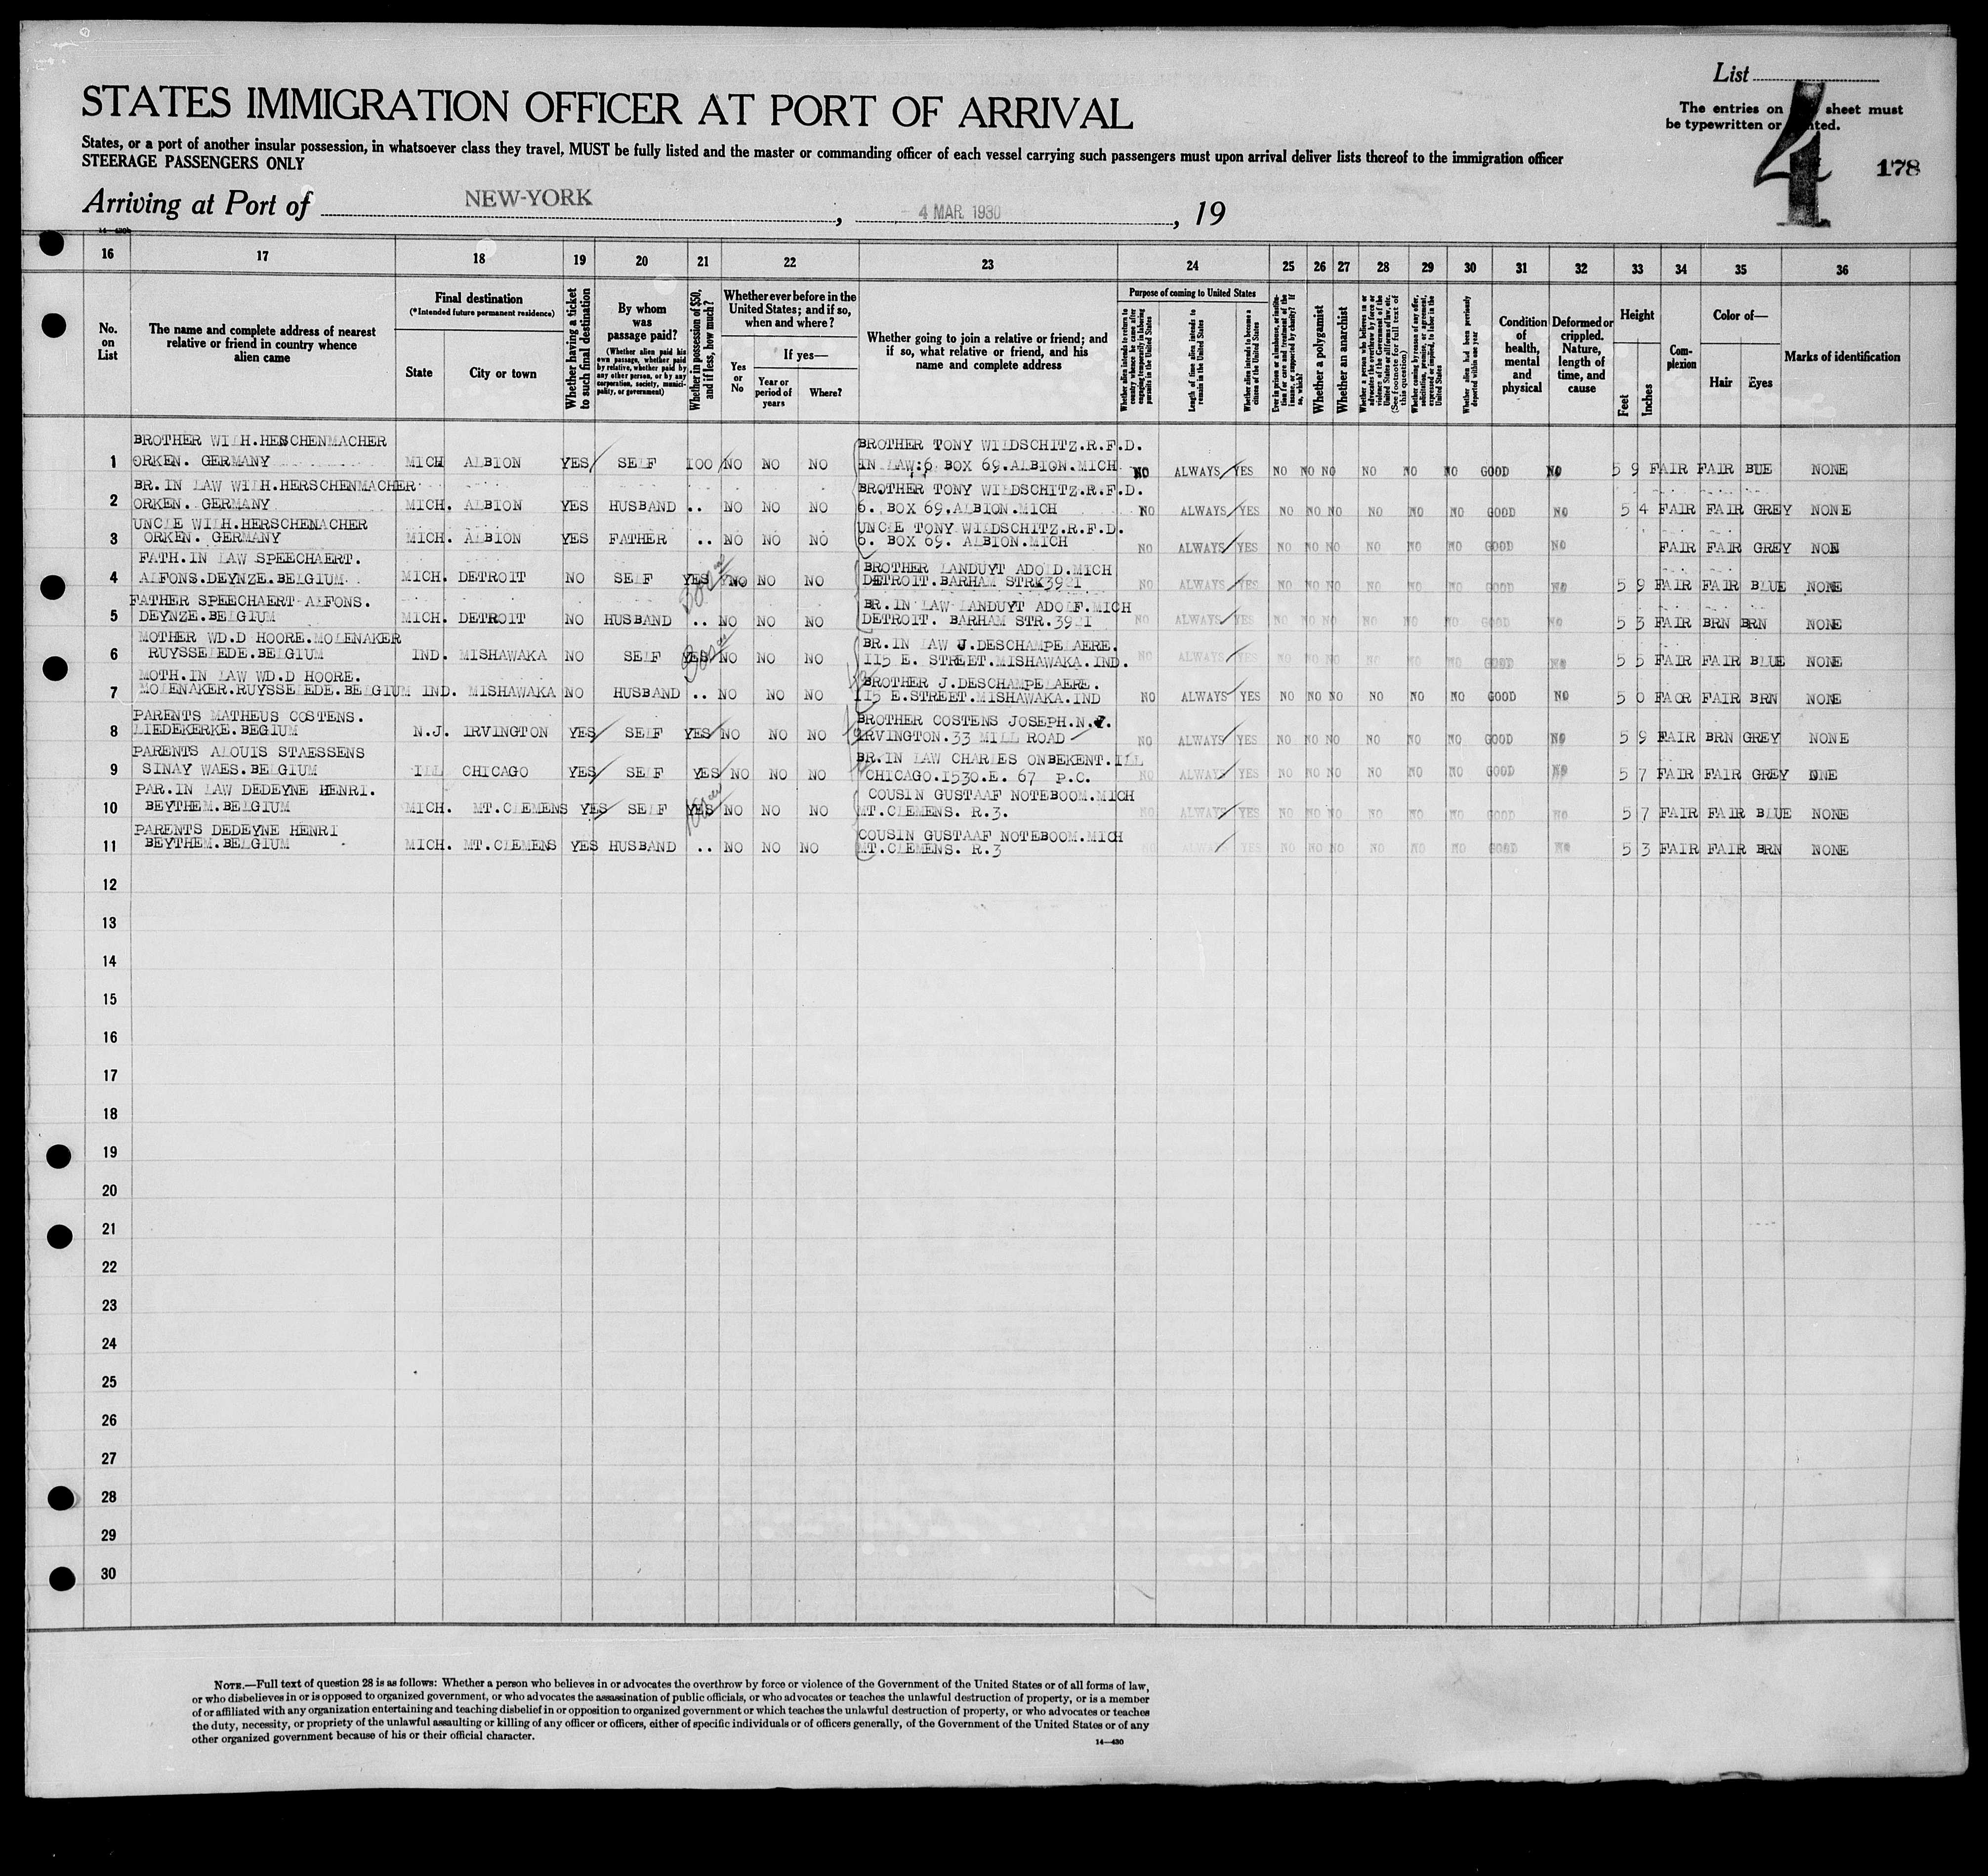 List
STATES IMMIGRATION OFFICER AT PORT OF ARRIVAL
The entries on sheet must
be typewritten or
4
178
States, or a port of another insular possession, in whatsoever class they travel, MUST be fully listed and the master or commanding officer of each vessel carrying such passengers must upon arrival deliver lists thereof to the immigration officer
STEERAGE PASSENGERS ONLY
Arriving at Port of NEW-YORK, 4 MAR 1930, 19
16 17 18 19 20 21 22 23 24 25 26 27 28 29 30 31 32 33 34 35 36
No. on List
The name and complete address of nearest relative or friend in country whence alien came
Final destination
(*Intended future permanent residence)
State
City or town
Whether having a ticket to such final destination
By whom was passage paid?
(Whether alien paid his own passage, whether paid by relative, whether paid by any other person, or by any corporation, society, municipality, or government)
Whether in possession of $50, and if less, how much?
Whether ever before in the United States; and if so, when and where?
Yes or No
If yes—
Year or period of years
Where?
Whether going to join a relative or friend; and if so, what relative or friend, and his name and complete address
Purpose of coming to United States
Whether alien intends to return to country whence he came after engaging temporarily in laboring pursuits in the United States
Length of time alien intends to remain in the United States
Whether alien intends to become a citizen of the United States
Whether a polygamist
Whether an anarchist
Whether alien had been previously deported within one year
Condition of health, mental and physical
Deformed or crippled. Nature, length of time, and cause
Height
Feet
Inches
Complexion
Color of—
Hair
Eyes
Marks of identification
BROTHER WILH.HERSCHENMACHER BROTHER TONY WILDSCHITZ.R.F.D.
1 ORKEN. GERMANY MICH ALBION YES SELF 100 NO NO NO IN LAW:6 BOX 69.ALBION.MICH NO ALWAYS YES NO NO NO NO NO NO GOOD NO 5 9 FAIR FAIR BUE NONE
BR. IN LAW WILH.HERSCHENMACHER BROTHER TONY WILDSCHITZ.R.F.D.
2 ORKEN. GERMANY MICH. ALBION YES HUSBAND .. NO NO NO 6. BOX 69.ALBION.MICH NO ALWAYS YES NO NO NO NO NO NO GOOD NO 5 4 FAIR FAIR GREY NONE
UNCLE WILH.HERSCHENACHER UNCLE TONY WILDSCHITZ.R.F.D.
3 ORKEN. GERMANY MICH. ALBION YES FATHER .. NO NO NO 6. BOX 69. ALBION.MICH NO ALWAYS YES NO NO NO NO NO NO GOOD NO FAIR FAIR GREY NOE
FATH.IN LAW SPEECHAERT. BROTHER LANDUYT ADOLD.MICH
4 ALFONS.DEYNZE.BELGIUM MICH. DETROIT NO SELF YES NO NO NO DETROIT.BARHAM STRK3921 NO ALWAYS YES NO NO NO NO NO NO GOOD NO 5 9 FAIR FAIR BLUE NONE
FATHER SPEECHAERT ALFONS. BR.IN LAW LANDUYT ADOLF.MICH
5 DEYNZE.BELGIUM MICH. DETROIT NO HUSBAND .. NO NO NO DETROIT. BARHAM STR.3921 NO ALWAYS YES NO NO NO NO NO NO GOOD NO 5 3 FAIR BRN BRN NONE
MOTHER WD.D HOORE.MOLENAKER BR.IN LAW J.DESCHAMPELAERE.
6 RUYSSELEDE.BELGIUM IND. MISHAWAKA NO SELF YES NO NO NO 115 E. STREET.MISHAWAKA.IND. NO ALWAYS YES NO NO NO NO NO NO GOOD NO 5 5 FAIR FAIR BLUE NONE
MOTH.IN LAW WD.D HOORE. BROTHER J.DESCHAMPELAERE.
7 MOLENAKER.RUYSSELEDE.BELGIUM IND. MISHAWAKA NO HUSBAND .. NO NO NO 115 E.STREET.MISHAWAKA.IND NO ALWAYS YES NO NO NO NO NO NO GOOD NO 5 0 FAOR FAIR BRN NONE
PARENTS MATHEUS COSTENS. BROTHER COSTENS JOSEPH.N.J.
8 LIEDEKERKE.BEGIUM N.J. IRVINGTON YES SELF YES NO NO NO IRVINGTON.33 MILL ROAD NO ALWAYS YES NO NO NO NO NO NO GOOD NO 5 9 FAIR BRN GREY NONE
PARENTS ALOUIS STAESSENS BR.IN LAW CHARLES ONBEKENT.ILL
9 SINAY WAES.BELGIUM ILL CHICAGO YES SELF YES NO NO NO CHICAGO.1530.E. 67 P.C. NO ALWAYS YES NO NO NO NO NO NO GOOD NO 5 7 FAIR FAIR GREY ONE
PAR.IN LAW DEDEYNE HENRI. COUSIN GUSTAAF NOTEBOOM.MICH
10 BEYTHEM.BELGIUM MICH. MT.CLEMENS YES SELF YES NO NO NO MT.CLEMENS. R.3. NO ALWAYS YES NO NO NO NO NO NO GOOD NO 5 7 FAIR FAIR BLUE NONE
PARENTS DEDEYNE HENRI COUSIN GUSTAAF NOTEBOOM.MICH
11 BEYTHEM.BELGIUM MICH. MT.CLEMENS YES HUSBAND .. NO NO NO MT.CLEMENS. R.3 NO ALWAYS YES NO NO NO NO NO NO GOOD NO 5 3 FAIR FAIR BRN NONE
12
13
14
15
16
17
18
19
20
21
22
23
24
25
26
27
28
29
30
NOTE.—Full text of question 28 is as follows: Whether a person who believes in or advocates the overthrow by force or violence of the Government of the United States or of all forms of law,
or who disbelieves in or is opposed to organized government, or who advocates the assassination of public officials, or who advocates or teaches the unlawful destruction of property, or is a member
of or affiliated with any organization entertaining and teaching disbelief in or opposition to organized government or which teaches the unlawful destruction of property, or who advocates or teaches
the duty, necessity, or propriety of the unlawful assaulting or killing of any officer or officers, either of specific individuals or of officers generally, of the Government of the United States or of any
other organized government because of his or their official character.
14—430